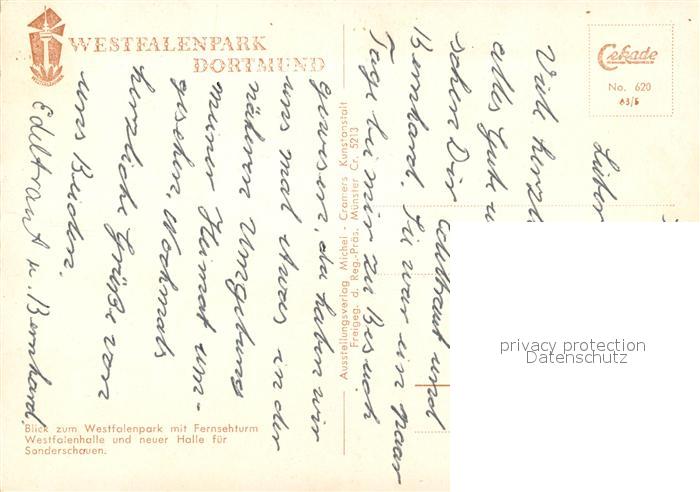 WESTFALENPARK
DORTMUND
Cekade
No. 620
63/5
Lieber
Viele herzl
alles Gute u
schen Dir Edeltraut und
Bernhard. Sie war ein paar
Tage bei mir zu Besuch
gewesen, da haben wir
uns mal etwas in der
näheren Umgebung
meiner Heimat um-
gesehen. Nochmals
herzliche Grüße von
uns Beiden.
Edeltraut u. Bernhard.
Ausstellungsverlag Michel - Cramers Kunstanstalt
Freigeg. d. Reg.-Präs. Münster Cr. 5213
Blick zum Westfalenpark mit Fernsehturm
Westfalenhalle und neuer Halle für
Sonderschauen.
privacy protection
Datenschutz